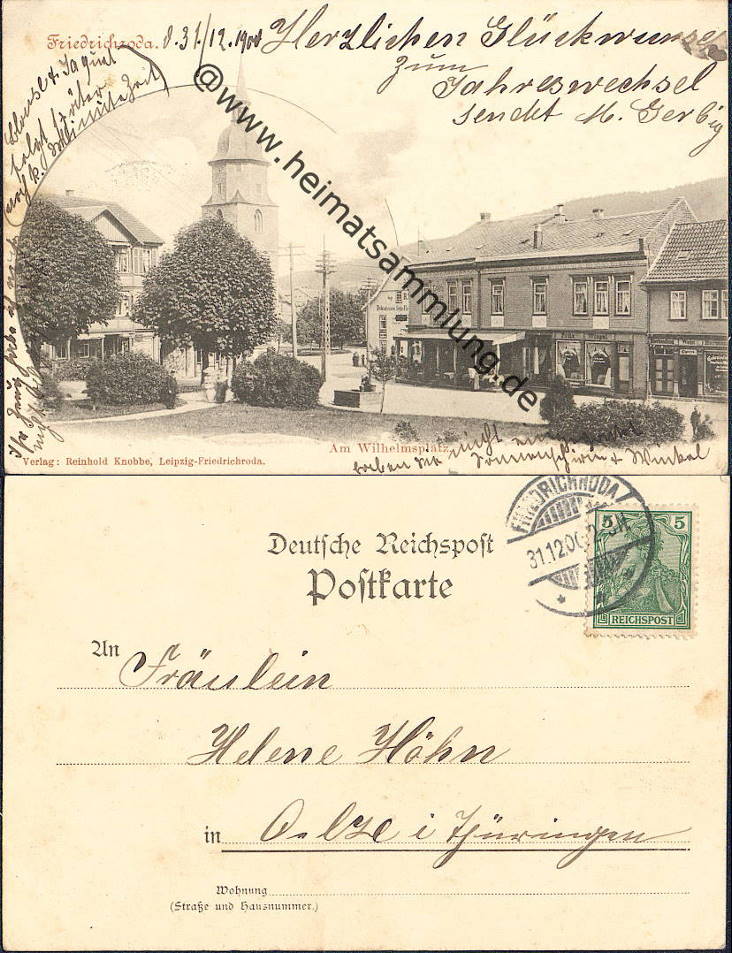 Friedrichroda. d. 31/12. 1900
Herzlichen Glückwunsch
zum
Jahreswechsel
sendet M. Gerbig
folgt später
@www.heimatsammlung.de
Am Wilhelmsplatz
haben Sie nicht ein
Sonnenschirm + Winkel
Verlag: Reinhold Knobbe, Leipzig-Friedrichroda.
FRIEDRICHRODA
31.12.00
5 5
REICHSPOST
Deutsche Reichspost
Postkarte
An Fräulein
Helene Höhn
in Oelze i Thüringen
Wohnung
(Straße und Hausnummer.)